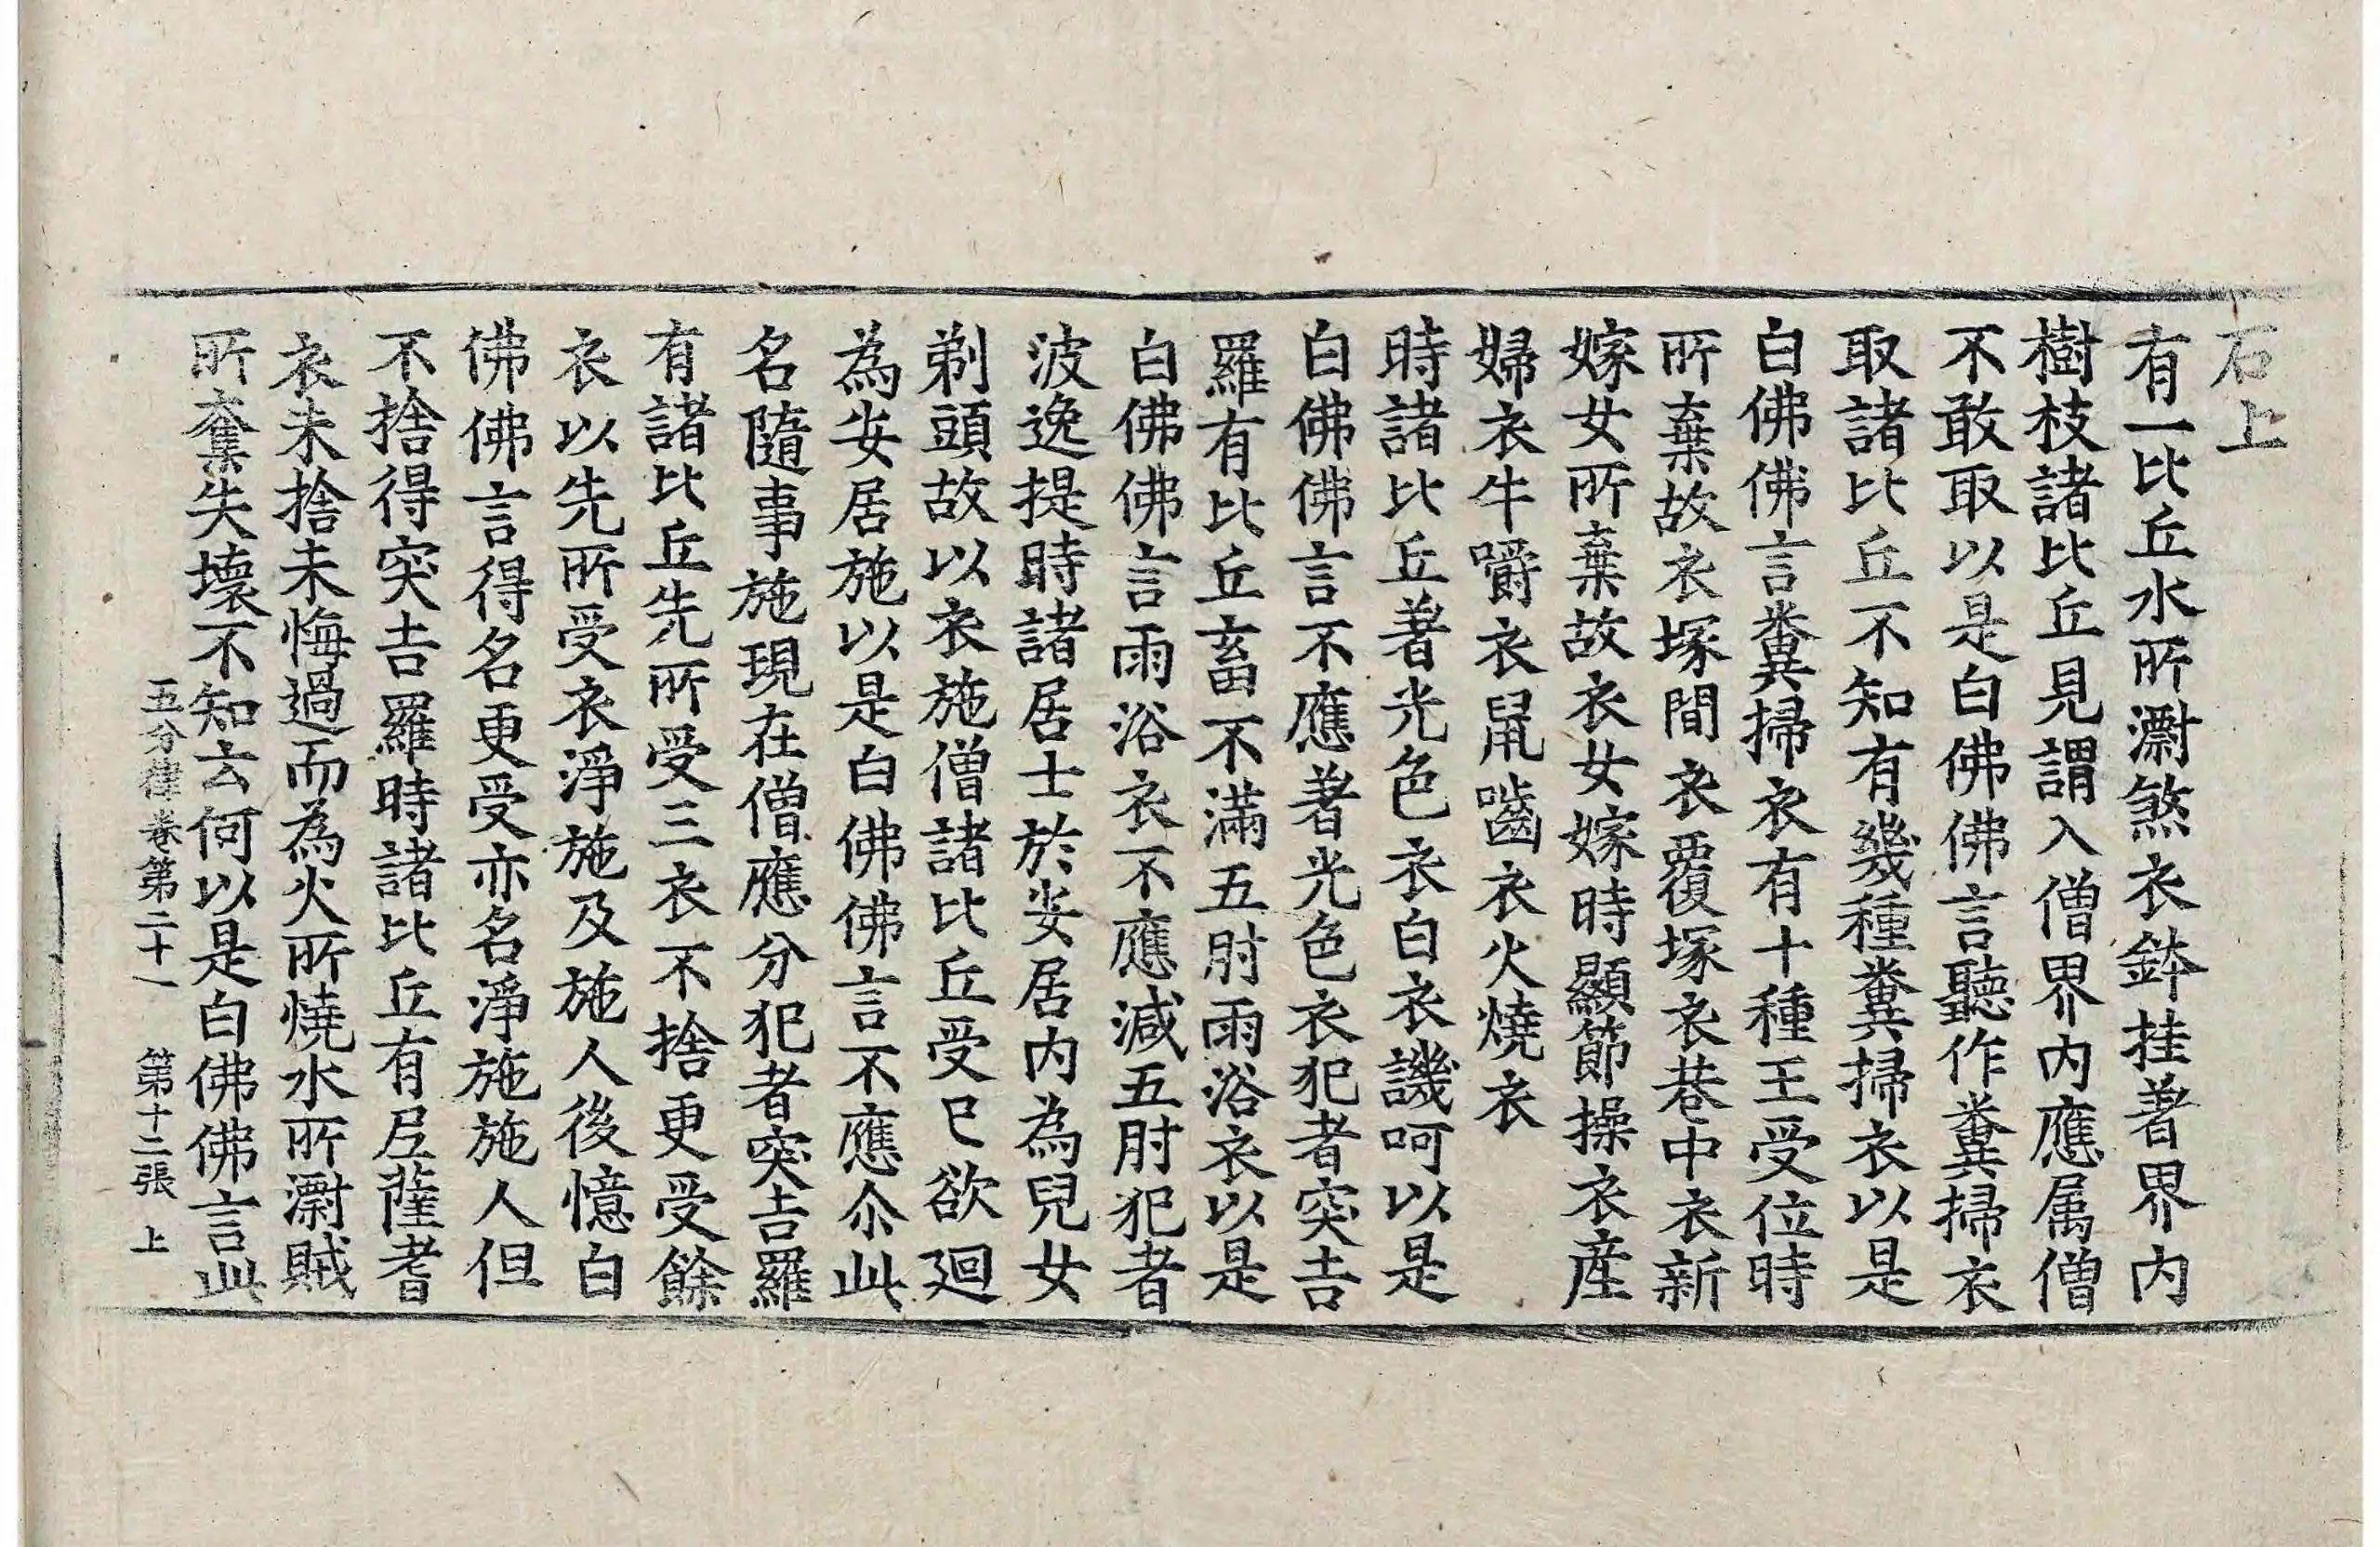 石上
有一比丘水所㵝煞衣鉢挂著界內
樹枝諸比丘見謂入僧界內應属僧
不敢取以是白佛佛言聽作糞掃衣
取諸比丘不知有幾種糞掃衣以是
白佛佛言糞掃衣有十種王受位時
所棄故衣塚間衣覆塚衣巷中衣新
嫁女所棄故衣女嫁時顯節操衣産
婦衣牛嚼衣鼠囓衣火燒衣
時諸比丘著光色衣白衣譏呵以是
白佛佛言不應著光色衣犯者突吉
羅有比丘畜不滿五肘雨浴衣以是
白佛佛言雨浴衣不應減五肘犯者
波逸提時諸居士於安居內為兒女
剃頭故以衣施僧諸比丘受已欲廻
為安居施以是白佛佛言不應尒此
名隨事施現在僧應分犯者突吉羅
有諸比丘先所受三衣不捨更受餘
衣以先所受衣淨施及施人後憶白
佛佛言得名更受亦名淨施施人但
不捨得突吉羅時諸比丘有尼薩耆
衣未捨未悔過而為火所燒水所㵝賊
所奪失壞不知云何以是白佛佛言此
五分律卷第二十一 第十二張 上